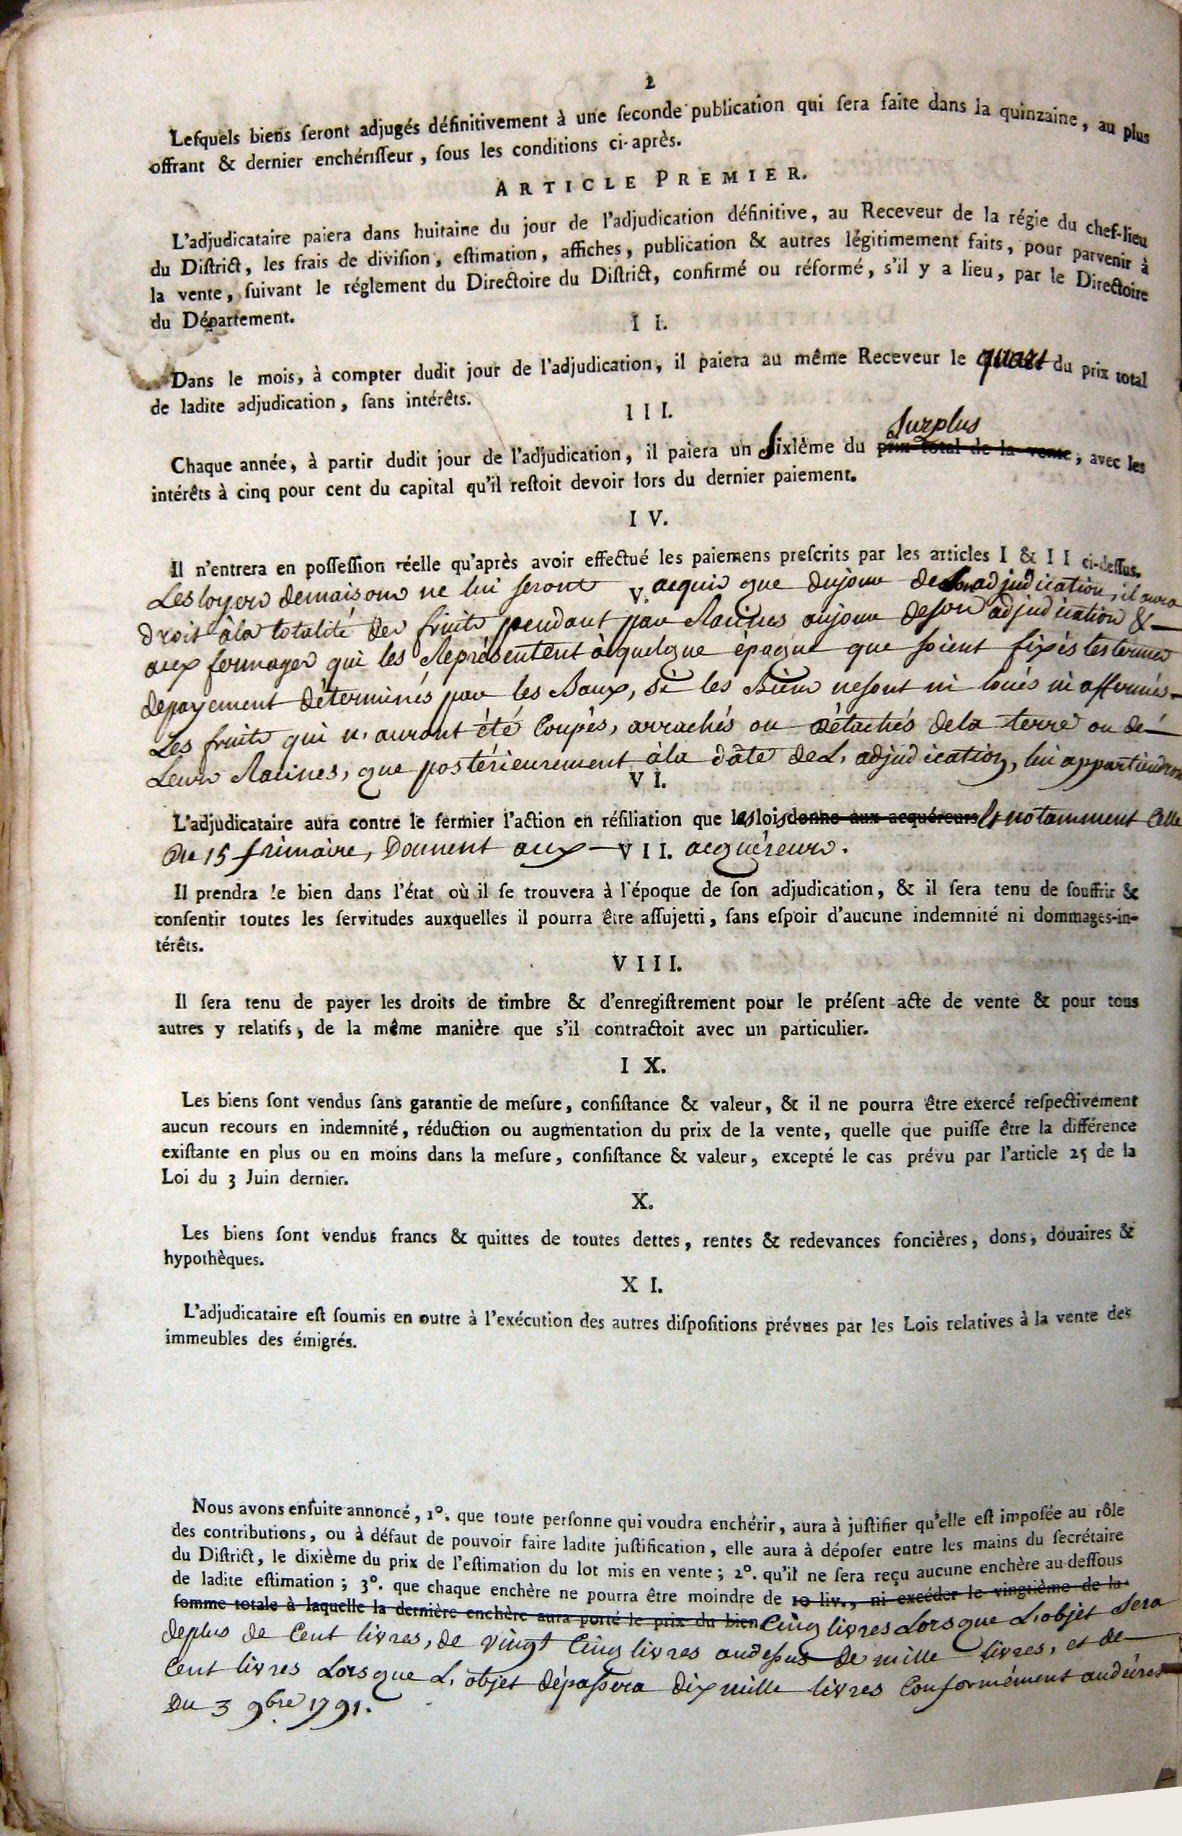 2
Lesquels biens seront adjugés définitivement à une seconde publication qui sera faite dans la quinzaine, au plus
offrant & dernier enchérisseur, sous les conditions ci-après.
ARTICLE PREMIER.
L'adjudicataire paiera dans huitaine du jour de l'adjudication définitive, au Receveur de la régie du chef-lieu
du District, les frais de division, estimation, affiches, publication & autres légitimement faits, pour parvenir à
la vente, suivant le réglement du Directoire du District, confirmé ou réformé, s'il y a lieu, par le Directoire
du Département.
II.
Dans le mois, à compter dudit jour de l'adjudication, il paiera au même Receveur le quart du prix total
de ladite adjudication, sans intérêts.
III.
surplus
Chaque année, à partir dudit jour de l'adjudication, il paiera un sixième du prix total de la vente, avec les
intérêts à cinq pour cent du capital qu'il restoit devoir lors du dernier paiement.
IV.
Il n'entrera en possession réelle qu'après avoir effectué les paiemens prescrits par les articles I & II ci-dessus.
Les loyers demaisons ne lui seront V. acquis que dujour de son adjudication, il aura
droit àla totalité des fruits pendant par Racines aujour deson adjudication &
aux fermages qui les Représentent àquelque époque que soient fixés les termes
depayement déterminés par les Baux, si les Biens nesont ni loués ni affermés
Les fruits qui n'auront été Coupés, arrachés ou détachés dela terre ou de
Leurs Racines, que postérieurement àla date deL'adjudication, lui appartiendront
VI.
L'adjudicataire aura contre le fermier l'action en résiliation que les lois donne aux acquéreurs & notamment Celle
Du 15 frimaire, Donnent aux VII. acquéreurs.
Il prendra le bien dans l'état où il se trouvera à l'époque de son adjudication, & il sera tenu de souffrir &
consentir toutes les servitudes auxquelles il pourra être assujetti, sans espoir d'aucune indemnité ni dommages-in-
térêts.
VIII.
Il sera tenu de payer les droits de timbre & d'enregistrement pour le présent acte de vente & pour tous
autres y relatifs, de la même manière que s'il contractoit avec un particulier.
IX.
Les biens sont vendus sans garantie de mesure, consistance & valeur, & il ne pourra être exercé respectivement
aucun recours en indemnité, réduction ou augmentation du prix de la vente, quelle que puisse être la différence
existante en plus ou en moins dans la mesure, consistance & valeur, excepté le cas prévu par l'article 25 de la
Loi du 3 Juin dernier.
X.
Les biens sont vendus francs & quittes de toutes dettes, rentes & redevances foncières, dons, douaires &
hypothèques.
XI.
L'adjudicataire est soumis en outre à l'exécution des autres dispositions prévues par les Lois relatives à la vente des
immeubles des émigrés.
Nous avons ensuite annoncé, 1°. que toute personne qui voudra enchérir, aura à justifier qu'elle est imposée au rôle
des contributions, ou à défaut de pouvoir faire ladite justification, elle aura à déposer entre les mains du secrétaire
du District, le dixième du prix de l'estimation du lot mis en vente; 2°. qu'il ne sera reçu aucune enchère au-dessous
de ladite estimation; 3°. que chaque enchère ne pourra être moindre de 10 liv., ni excéder le vingtième de la
somme totale à laquelle la dernière enchère aura porté le prix du bien Cinq livres Lorsque L'objet Sera
deplus de Cent livres, de vingt Cinq livres audessus de mille livres, et de
Cent livres Lorsque L'objet dépassera dix mille livres Conformément audécret
Du 3 9bre 1791.